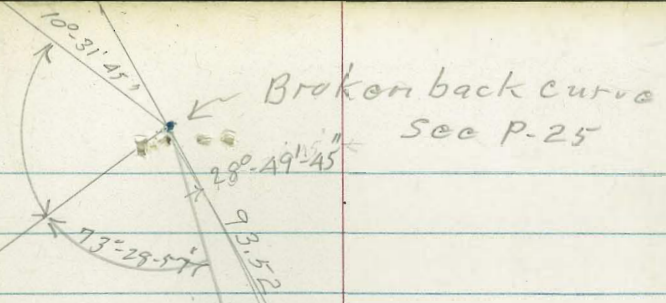 10°-31'45"
Broken back curve
See P-25
28°-49'-45"
93.52
73°-29-57"